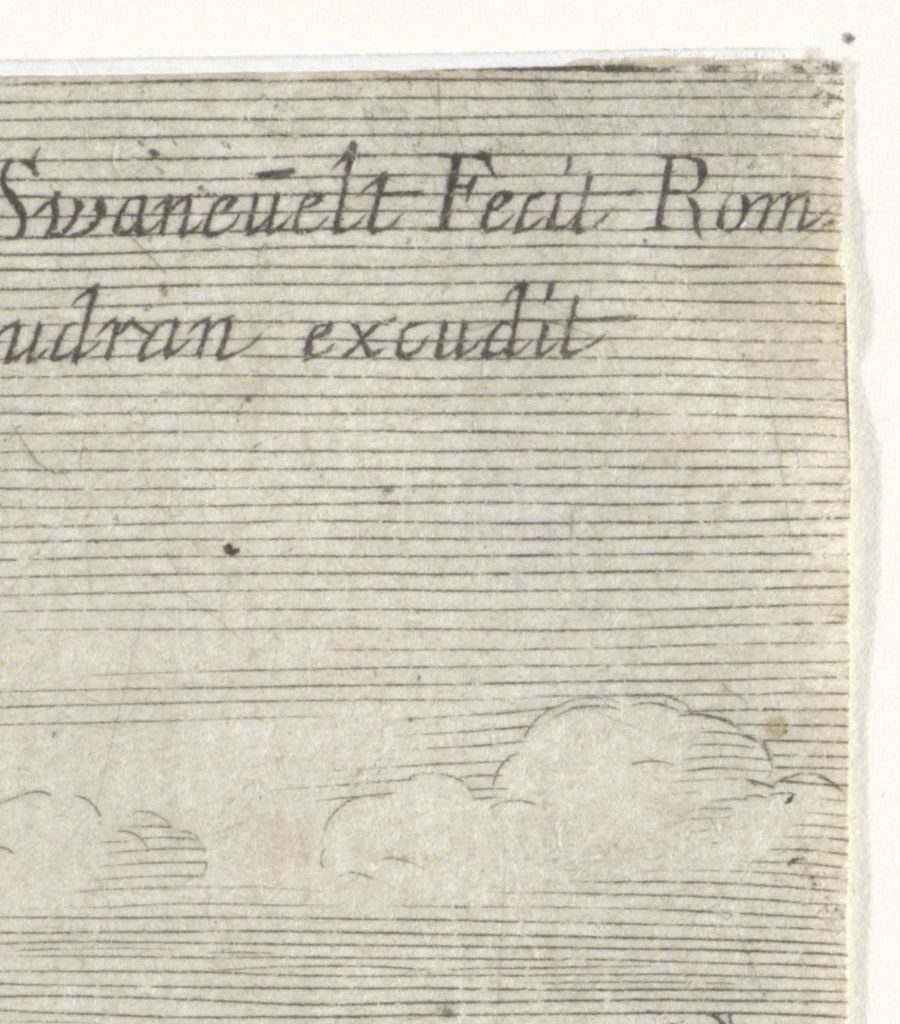 Swaneūelt Fecit Rom
udran excudit